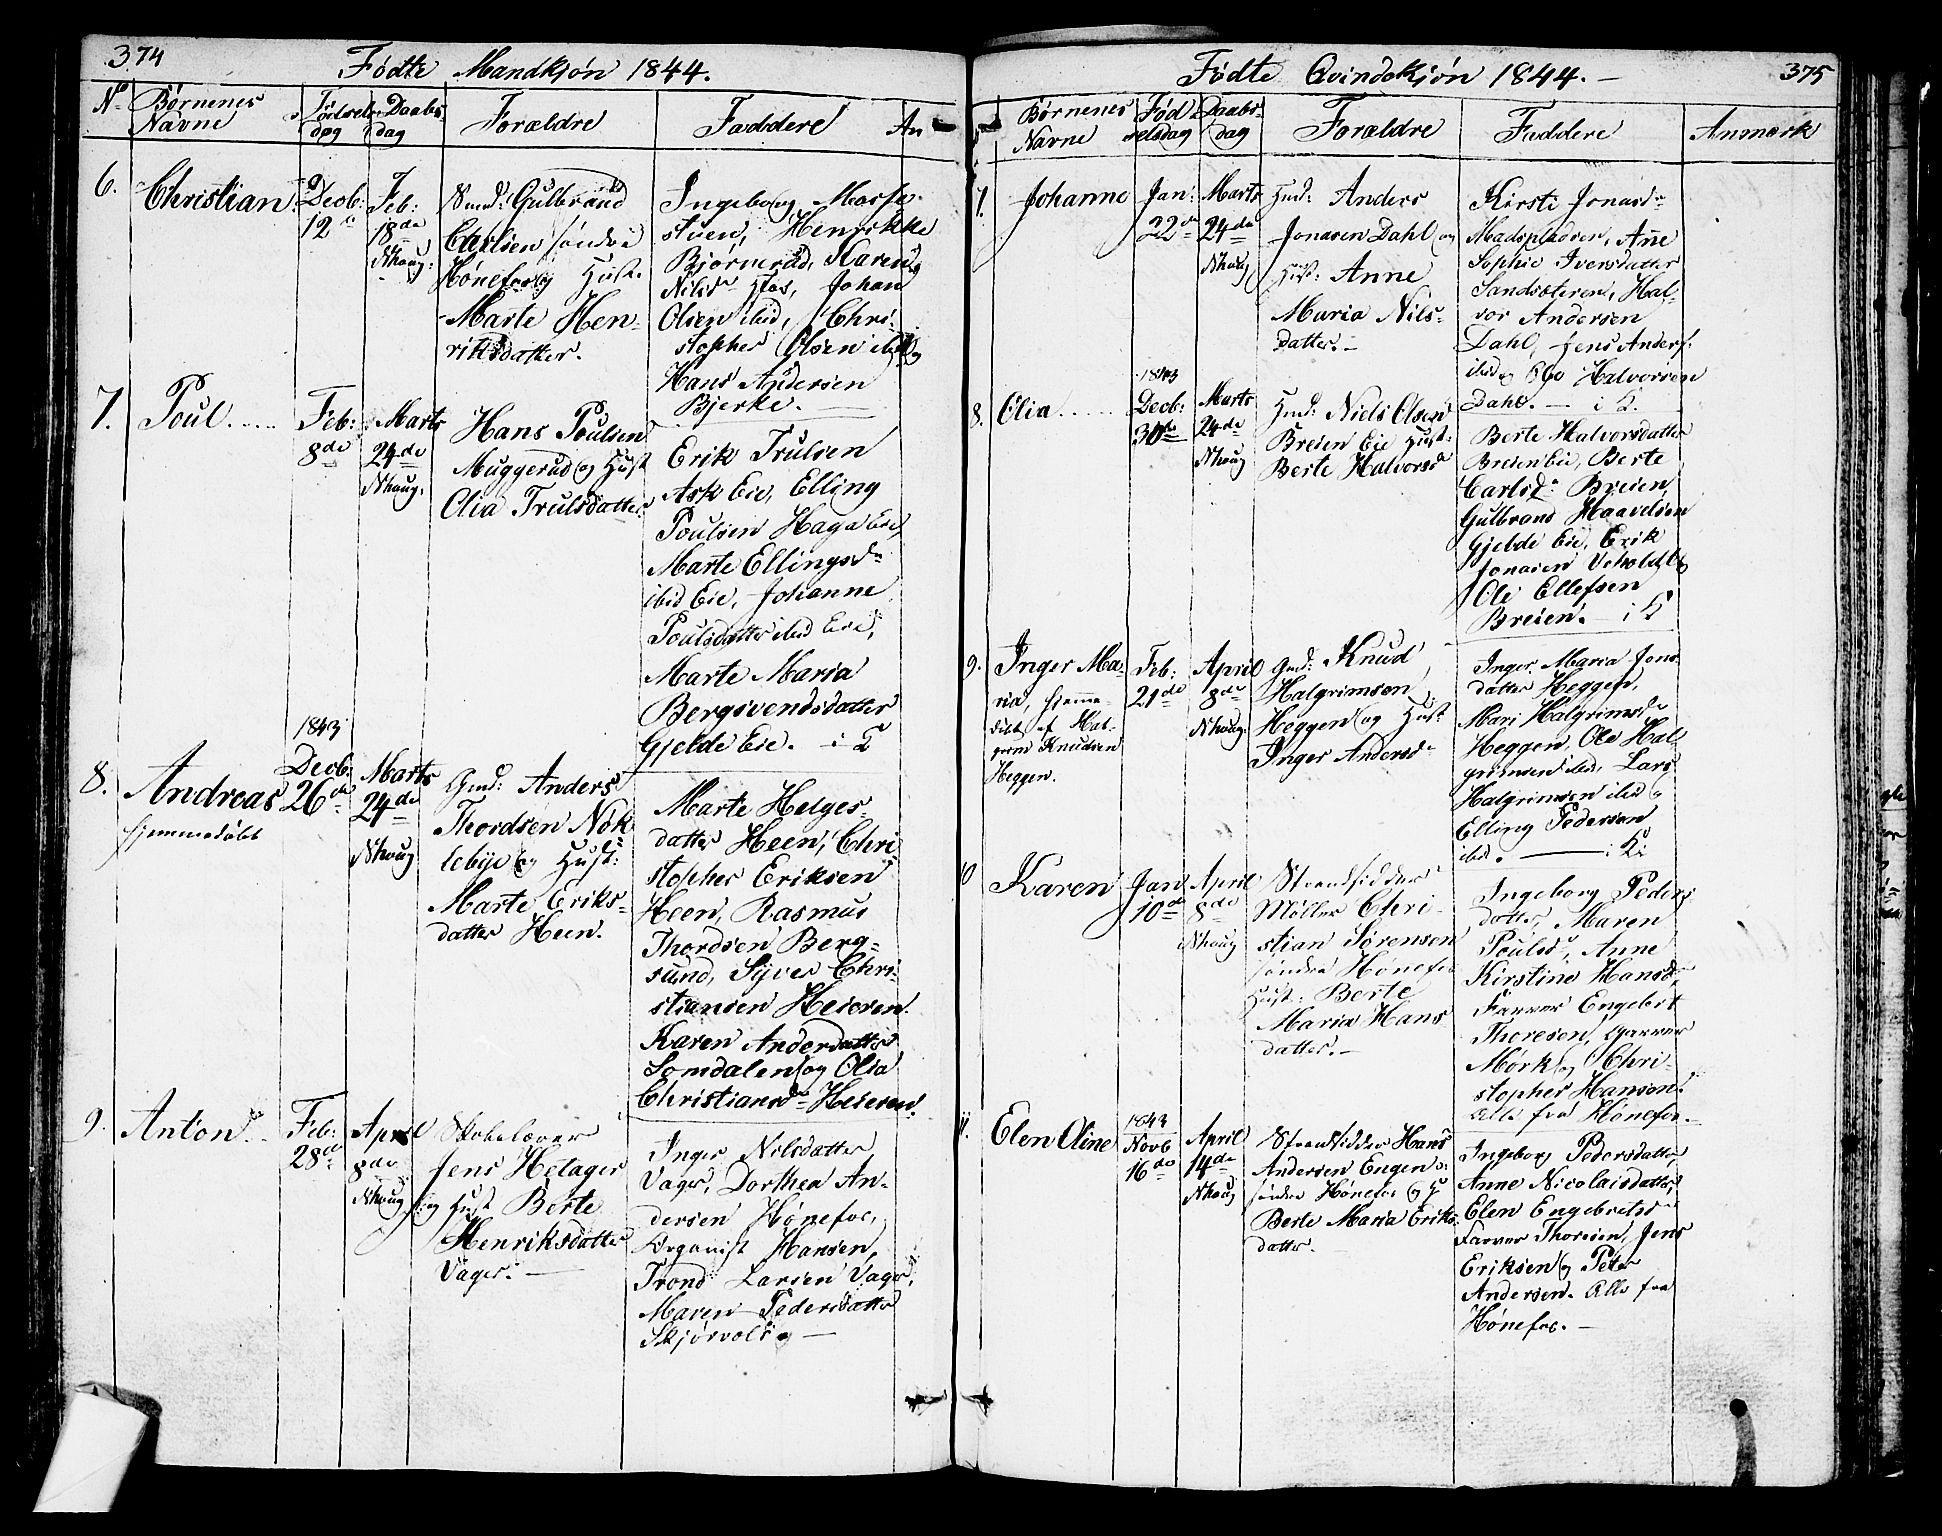 374
Fødte Mandkjøn 1844.
No
Børnenes Navne
Fødsels dag
Daabs dag
Forældre
Faddere
An
6.
Christian
Decb: 12te
Feb: 18de
Nhoug:
Gulbrand
søndre
Hønefos og Hust.
Marte Hen-
riksdatter.
Ingeborg
stuen, Henrikke
Bjørnerud, Karen
Nilsdr Hfos, Johan
Olsen ibid, Chri-
stopher Olsen ibid og
Hans Andersen
Bjerke.
7.
Poul.....
Feb: 8de
Marts 24de
Nhoug.
Hans Poulsen
Muggerud og Hust
Olia Trulsdatter
Erik Trulsen
Ask Eie, Elling
Poulsen Haga Eie,
Marte Ellingsdr
ibid Eie, Johanne
Poulsdatter ibid Eie,
Marte Maria
Bergsvendsdatter
Gjelde Eie. — i
8.
Andreas
hjemmedøbt
1843
Decb: 26de
Marts 24de
Nhoug
Gmd: Anders
Thordsen Nök-
lebye og Hust:
Marte Eriks-
datter Heen.
Marte Helges-
datter Heen, Chri-
stopher Eriksen
Heen, Rasmus
Thordsen Berg-
sund, Syver Chri-
stiansen Heieren.
Karen Andersdatter
Somdalen og Olia
Christiansdr Heieren.
9.
Anton..
Feb: 28de
April 8de
Nhoug
Skolelærer
Jens Hetager
og Hust Berte
Henriksdatter
Vager. —
Inger Nilsdatter
Vager, Dorthea An-
dersen Hønefos,
Organist Hansen,
Trond Larsen Vager,
Maren Pedersdatter
Skjørvold —
375
Fødte Qvindekjøn 1844. —
Børnenes Navne
Fødselsdag
Daabs-dag
Forældre
Faddere
Anmærk
7.
Johanne
Jan: 22de
Marts 24de
Nhoug
Hmd: Anders
Jonasen Dahl og
Hust: Anne
Maria Nils-
datter. —
Kirsti Jonasdr
Madspladsen, Anne
Sophie Iversdatter
Sandsæteren, Hal-
vor Andersen
Dahl, Jens Anders.
ibid og Ole Halvorsen
Dahl. — i
8.
Olia.....
1843
Decb: 30de
Marts 24de
Nhoug
Hmd: Niels Olsen
Breien Eie Hust:
Berte Halvorsdr
Berte Halvorsdatter
Breien Eie, Berte
Carlsdr Breien,
Gulbrand Haavelsen
Gjelde Eie, Erik
Jonasen Veholdt og
Ole Ellefsen
Breien. — i
9.
Inger Ma-
ria, hjemme-
døbt af Hal-
grim Knudsen
Heggen.
Feb: 21de
April 8de
Nhoug
Gmd: Knud
Halgrimsen
Heggen og Hust
Inger Andersdr
Inger Maria Jons-
datter Heggen,
Mari Halgrimsdr
Heggen, Ole Hal-
grimsen ibid, Lars
Halgrimsen ibid og
Elling Pedersen
ibid. —
10
Karen
Jan 10de
April 8de
Nhoug
Strandsidder
Møller Chri-
stian Sørensen
søndre Hønefos
Hust: Berte
Maria Hans
datter. —
Ingeborg Peders
datter, Maren
Poulsdr, Anne
Kirstine Hansdr
Farver Engebret
Thoresen, Garver
Mørk og Chri-
stopher Hansen.
Alle fra Hønefos. —
11.
Elen Oline
1843
Novb 16de
April 14de
Nhoug
Strandsidder Hans
Andersen Engen
søndre Hønefos og H
Berte Maria Eriks-
datter. —
Ingeborg Pedersdatter,
Anne Nicolaisdatter,
Elen Engebretsd
Farver Thoresen, Jens
Eriksen og Peter
Andersen. Alle fra
Hønefos. —